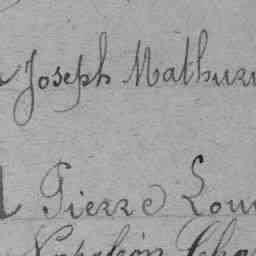 Joseph Mathuri
Pierre Lou
Napoléon Cha